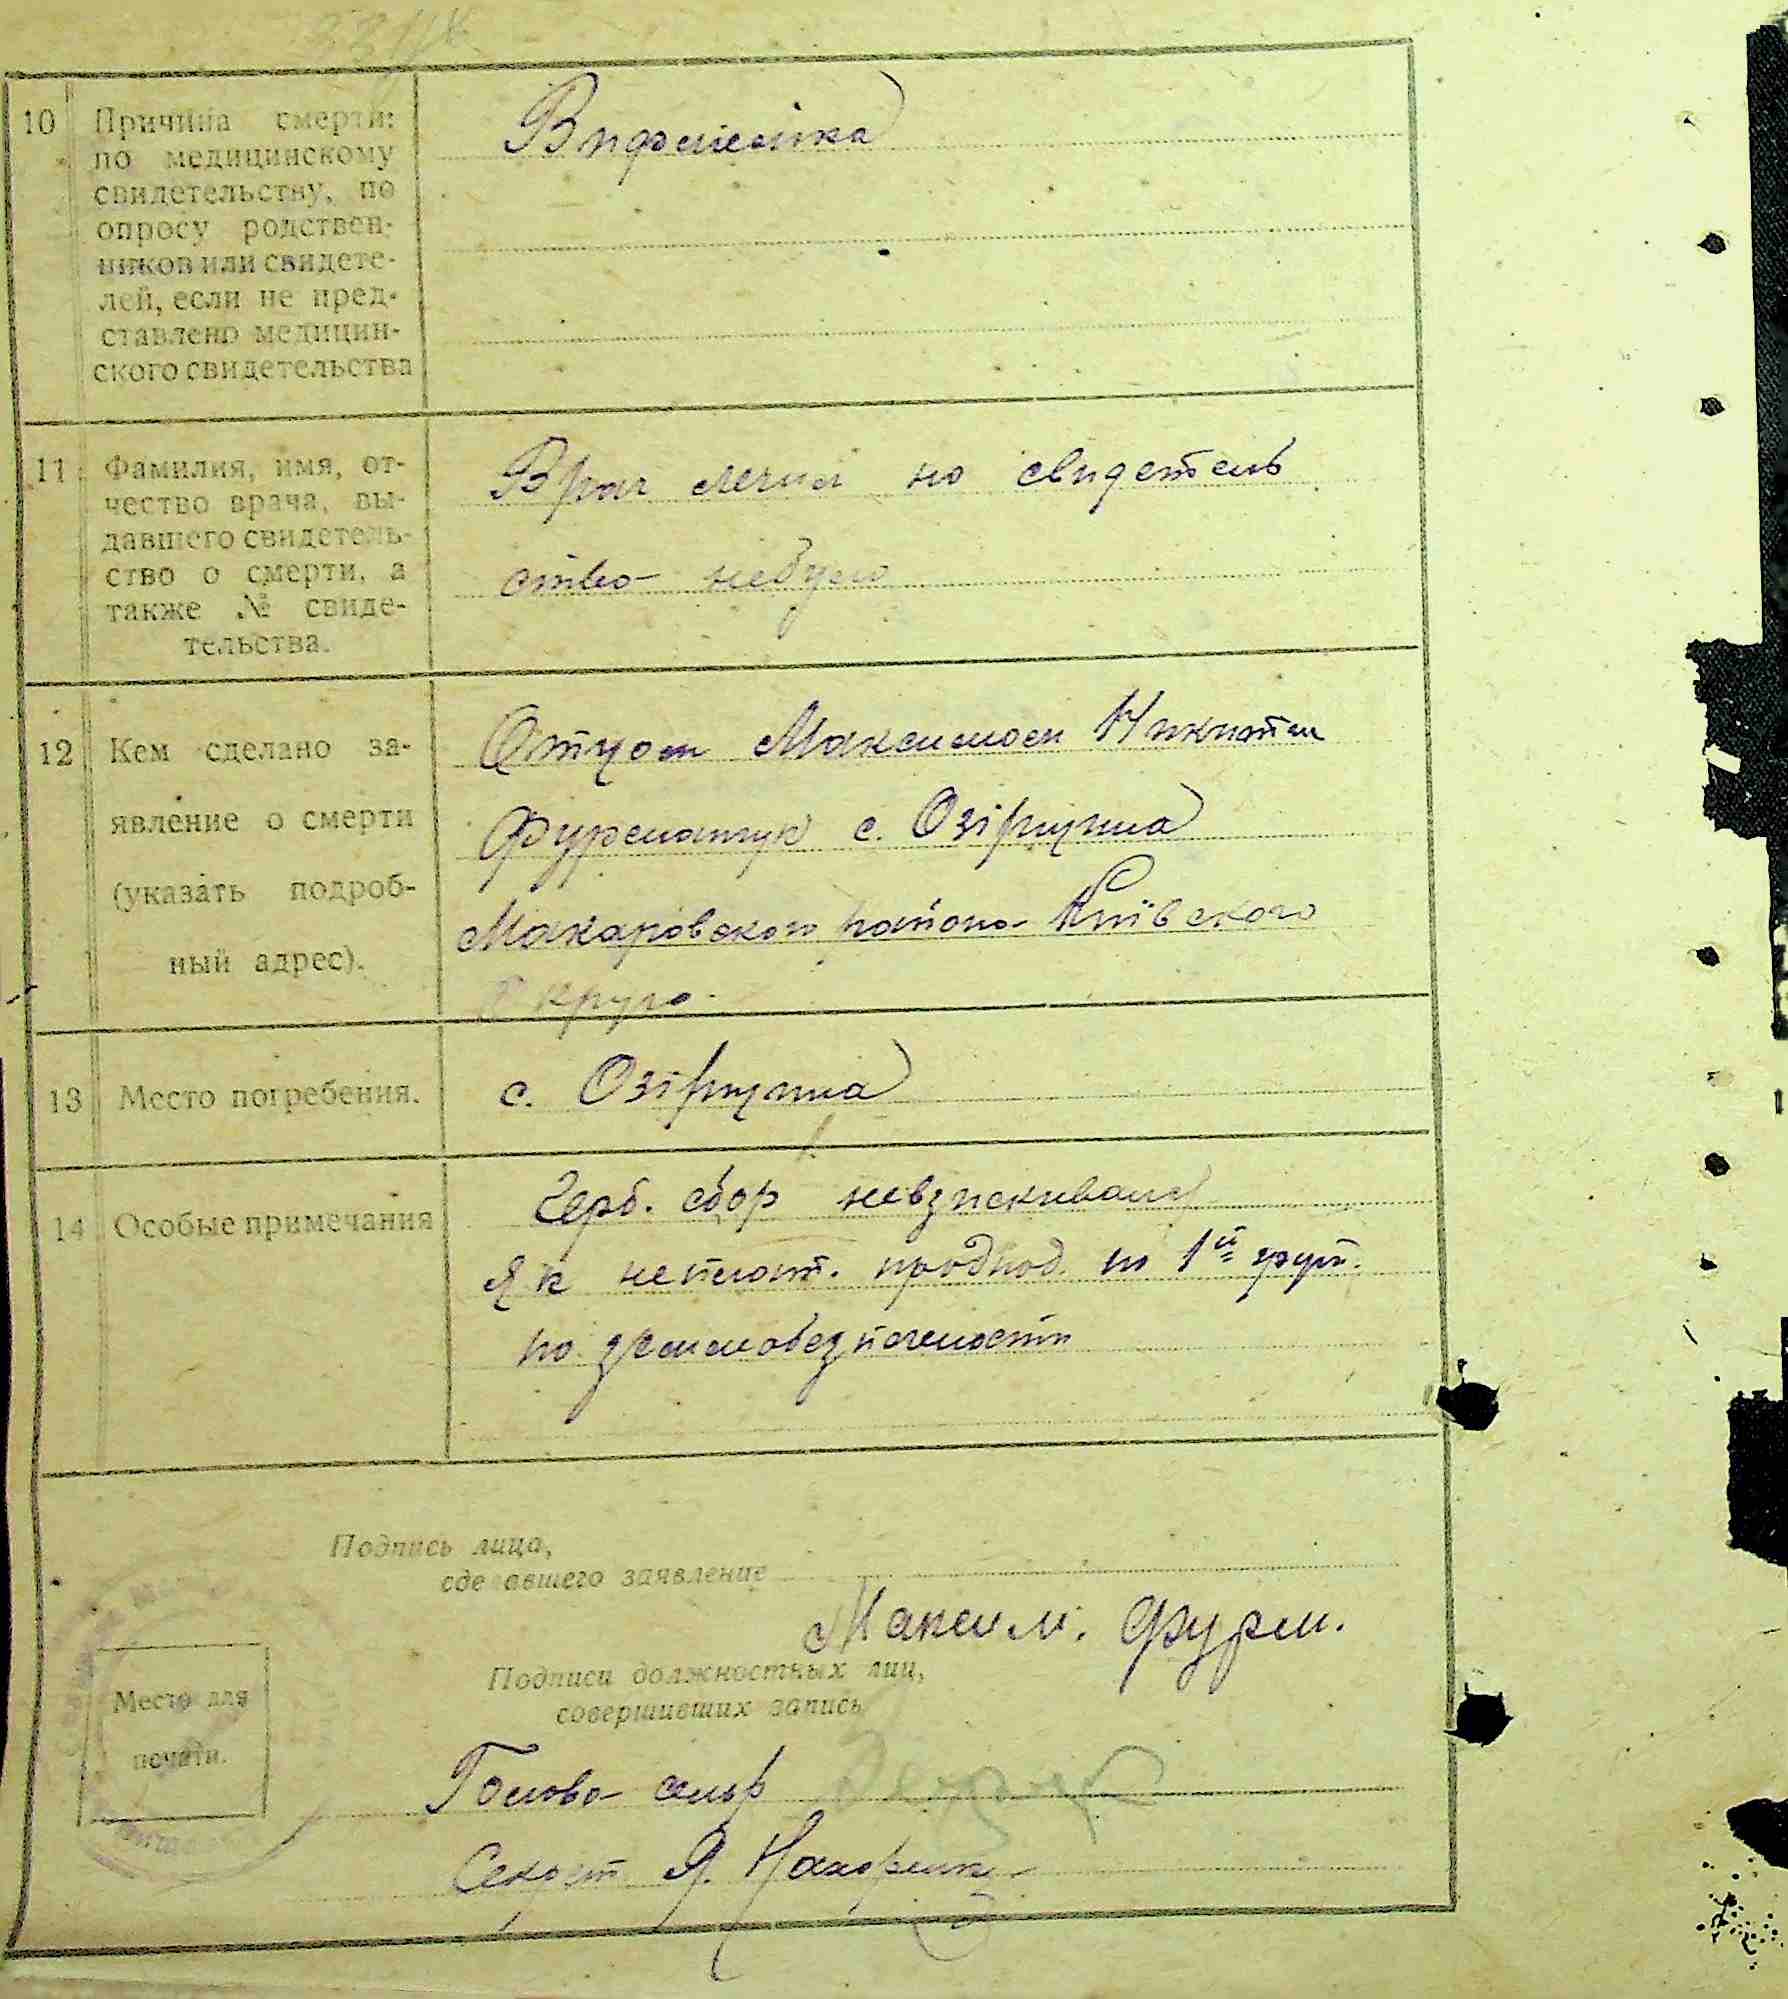 10
Причина смерти:
по медицинскому
свидетельству, по
опросу родствен-
ников или свидете-
лей, если не пред-
ставлено медицин-
ского свидетельства
11
Фамилия, имя, от-
чество врача, вы-
давшего свидетель-
ство о смерти, а
также № свиде-
тельства.
Врач лечил но свидетель
ство небуло
12
Кем сделано за-
явление о смерти
(указать подроб-
ный адрес).
Отцом Максимом Никитом
Фурманчук с. Озірщина
Макаровского району Київского
округа.
13
Место погребения.
с. Озірщина
14
Особые примечания
Герб. сбор невзискивался
Як неплат. продпод. по 1й груп.
по земмобезпечености
Подпись лица,
сделавшего заявление
Максим. Фурм.
Подписи должностных лиц,
совершивших запись
Место для
печати.
Голова сільр
Секрет Я.